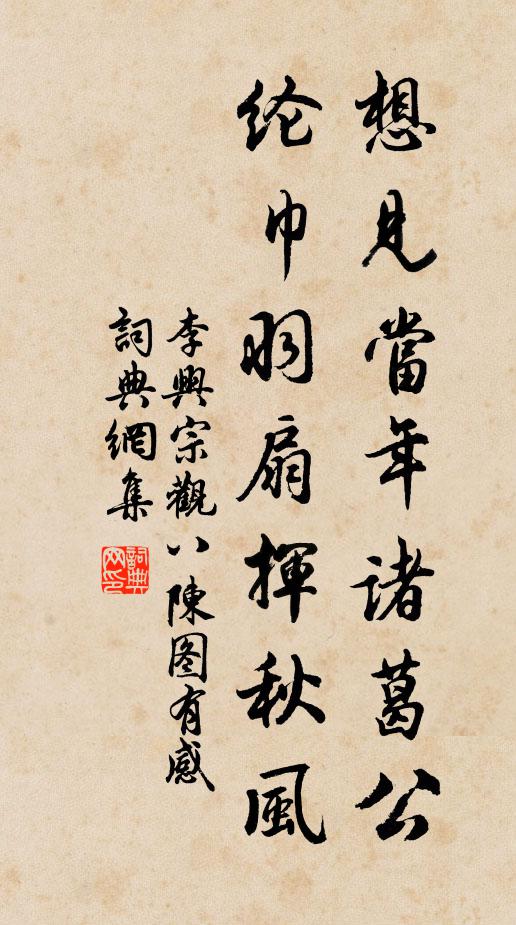 想見當年諸葛公
纶巾羽扇揮秋風
李興宗觀八陳图有感
詞典網集
詞典网印